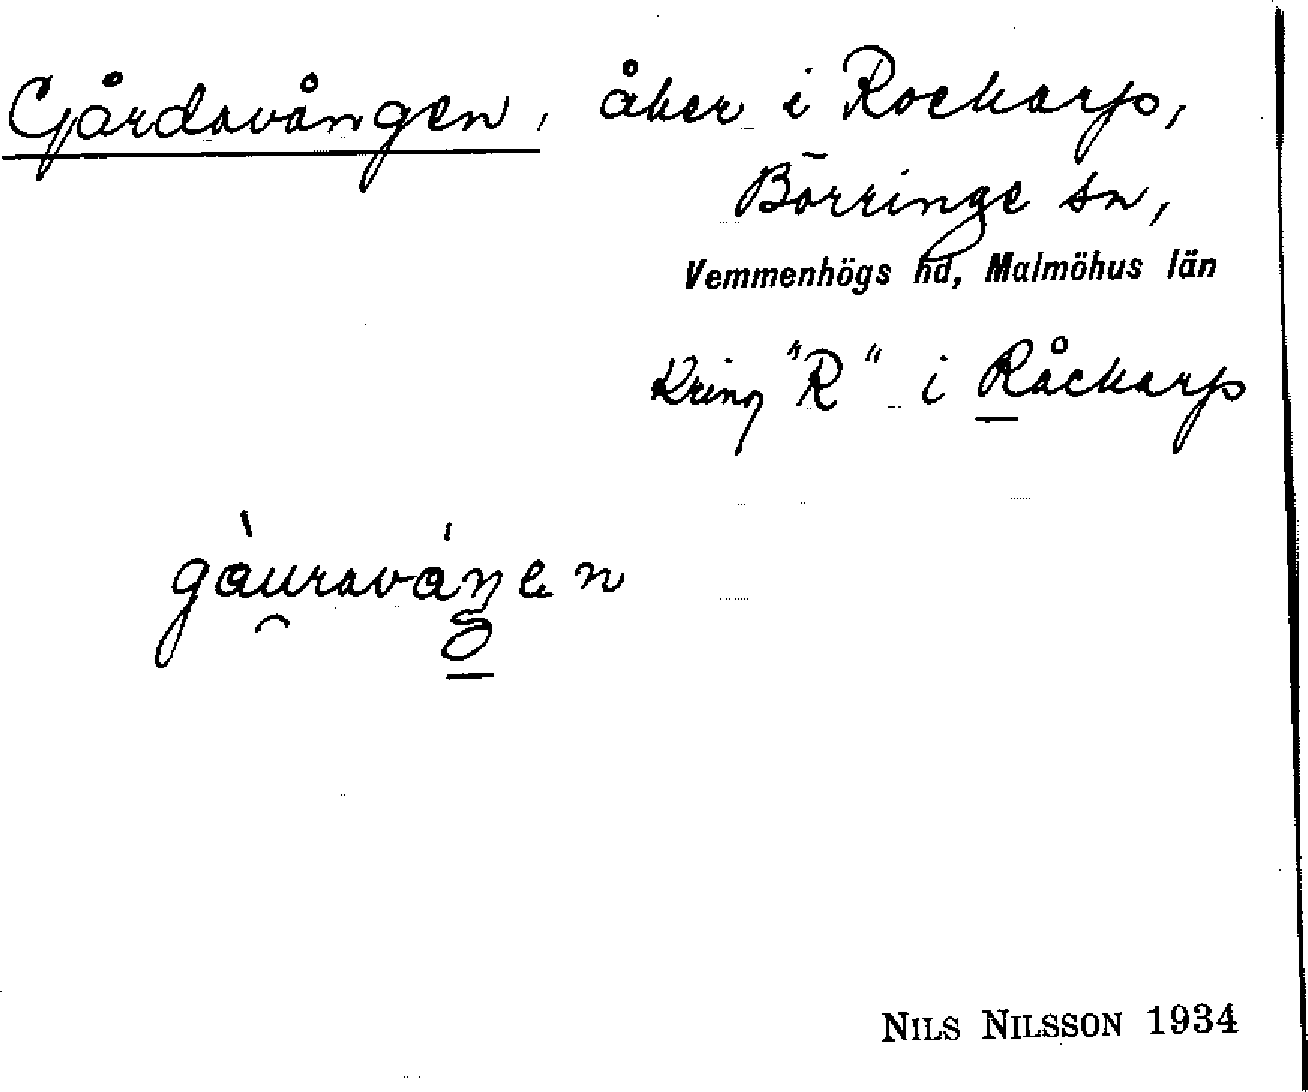 Gårdavången, åker i Rockarp,
Börringe sn,
Vemmenhögs hd, Malmöhus län
Kring "R" i Råckarp
gàuraváŋen
NILS NILSSON 1934